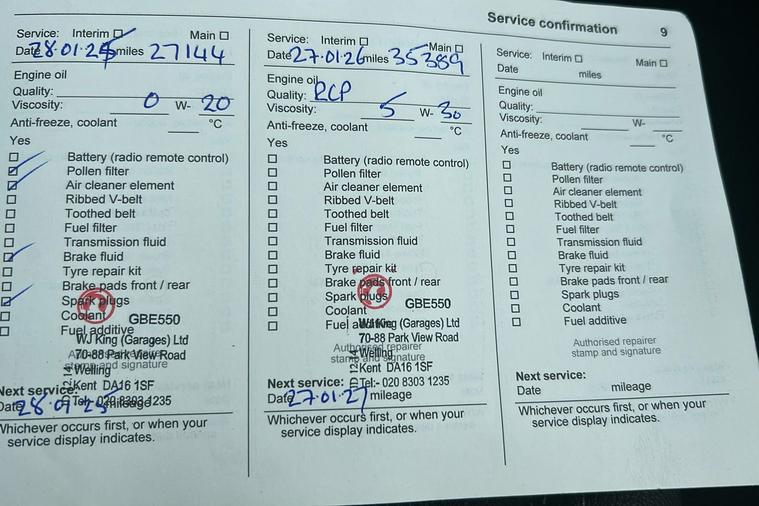 Service confirmation 9
Service: Interim Main
Date 28.01.25 miles 27144
Engine oil
Quality:
Viscosity: 0 W- 20
Anti-freeze, coolant °C
Yes
Battery (radio remote control)
Pollen filter
Air cleaner element
Ribbed V-belt
Toothed belt
Fuel filter
Transmission fluid
Brake fluid
Tyre repair kit
Brake pads front / rear
Spark plugs
Coolant GBE550
Fuel additive
WJ King (Garages) Ltd
70-88 Park View Road
stamp and signature
Welling
Kent DA16 1SF
Next service:
Tel:- 020 8303 1235
Date mileage
Whichever occurs first, or when your
service display indicates.
Service: Interim Main
Date 27.01.26 miles 35389
Engine oil
Quality: RCP
Viscosity: 5 W- 30
Anti-freeze, coolant °C
Yes
Battery (radio remote control)
Pollen filter
Air cleaner element
Ribbed V-belt
Toothed belt
Fuel filter
Transmission fluid
Brake fluid
Tyre repair kit
Brake pads front / rear
Spark plugs
GBE550
Coolant
Fuel additive
WJ King (Garages) Ltd
70-88 Park View Road
Authorised repairer
stamp and signature
Welling
Kent DA16 1SF
Next service: Tel:- 020 8303 1235
Date 27.01.27 mileage
Whichever occurs first, or when your
service display indicates.
Service: Interim Main
Date miles
Engine oil
Quality:
Viscosity: W-
Anti-freeze, coolant °C
Yes
Battery (radio remote control)
Pollen filter
Air cleaner element
Ribbed V-belt
Toothed belt
Fuel filter
Transmission fluid
Brake fluid
Tyre repair kit
Brake pads front / rear
Spark plugs
Coolant
Fuel additive
Authorised repairer
stamp and signature
Next service:
Date mileage
Whichever occurs first, or when your
service display indicates.